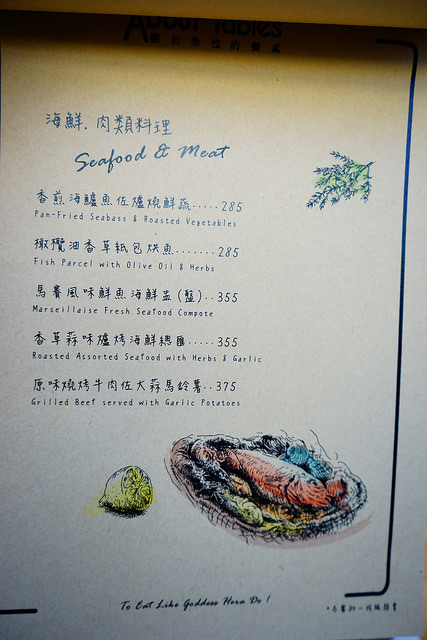 About Tables
關於希拉的餐桌
海鮮.肉類料理
Seafood & Meat
香煎海鱸魚佐爐燒鮮蔬.....285
Pan-Fried Seabass & Roasted Vegetables
橄欖油香草紙包烘魚.......285
Fish Parcel with Olive Oil & Herbs
馬賽風味鮮魚海鮮盅(盤)..355
Marseillaise Fresh Seafood Compote
香草蒜味爐烤海鮮總匯.....355
Roasted Assorted Seafood with Herbs & Garlic
原味燒烤牛肉佐大蒜馬鈴薯..375
Grilled Beef served with Garlic Potatoes
To Eat Like Goddess Hera Do !